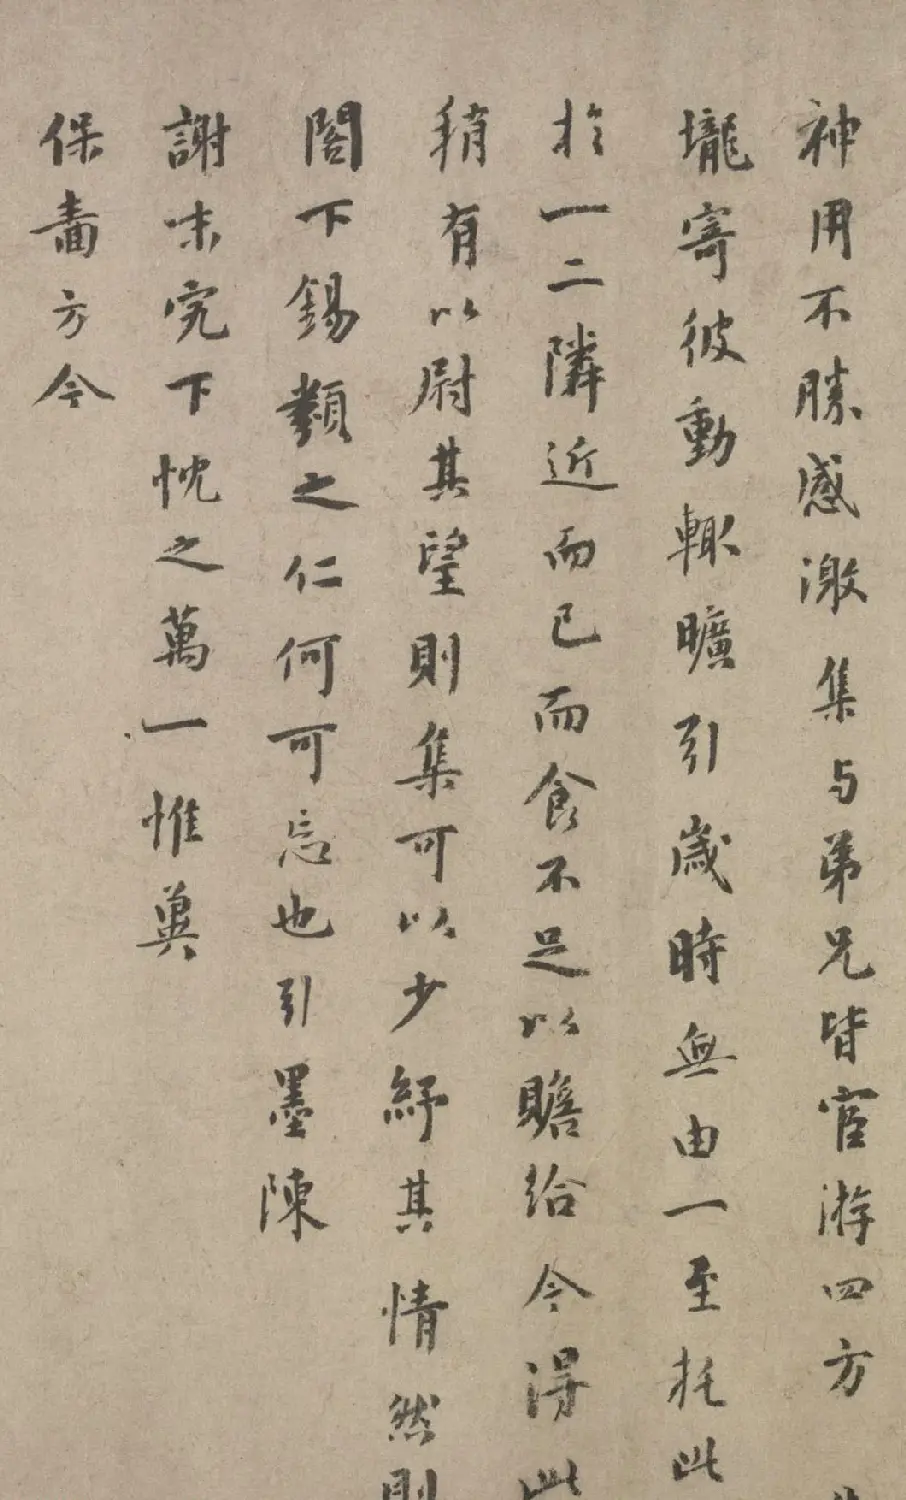 神用不勝感激集与弟兄皆宦游四方
壠寄彼動輙曠引歲時無由一至托此
於一二隣近而已而食不足以贍給今得此
稍有以尉其望則集可以少紓其情然則
閣下錫類之仁何可忘也引墨陳
謝未究下忱之萬一惟冀
保嗇方今